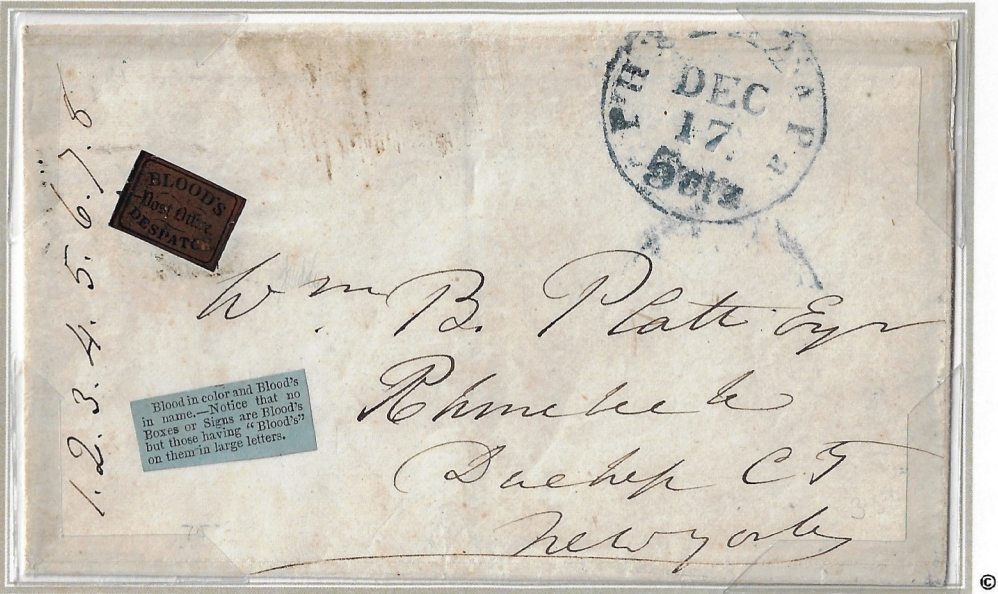 PHILADA Pa
DEC
17.
5 cts
BLOOD'S
Post Office
DESPATCH
1. 2. 3. 4. 5. 6. 7. 8
Wm B. Platt Esqr
Rhinebeck
Duchess CT
New York
Blood in color and Blood's
in name.—Notice that no
Boxes or Signs are Blood's
but those having "Blood's"
on them in large letters.
©